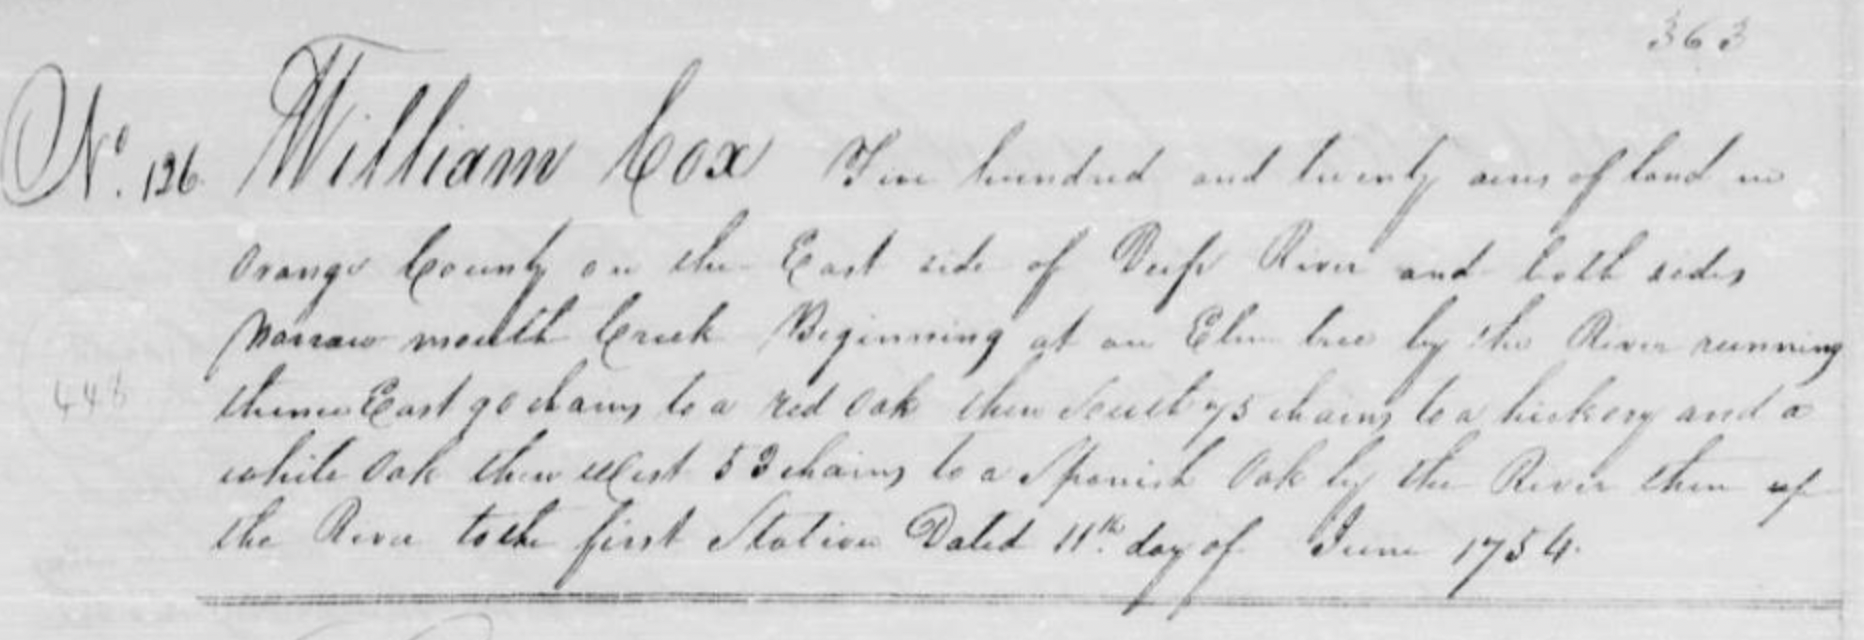 363
No. 126. William Cox Five hundred and twenty acres of land in
Orange County on the East side of Deep River and both sides
Narrow mouth Creek Beginning at an Elm tree by the River running
thence East 90 chains to a red oak then South 75 chains to a hickory and a
white Oak then West 53 chains to a Spanish Oak by the River then up
the River to the first Station Dated 11th. day of June 1754.
446